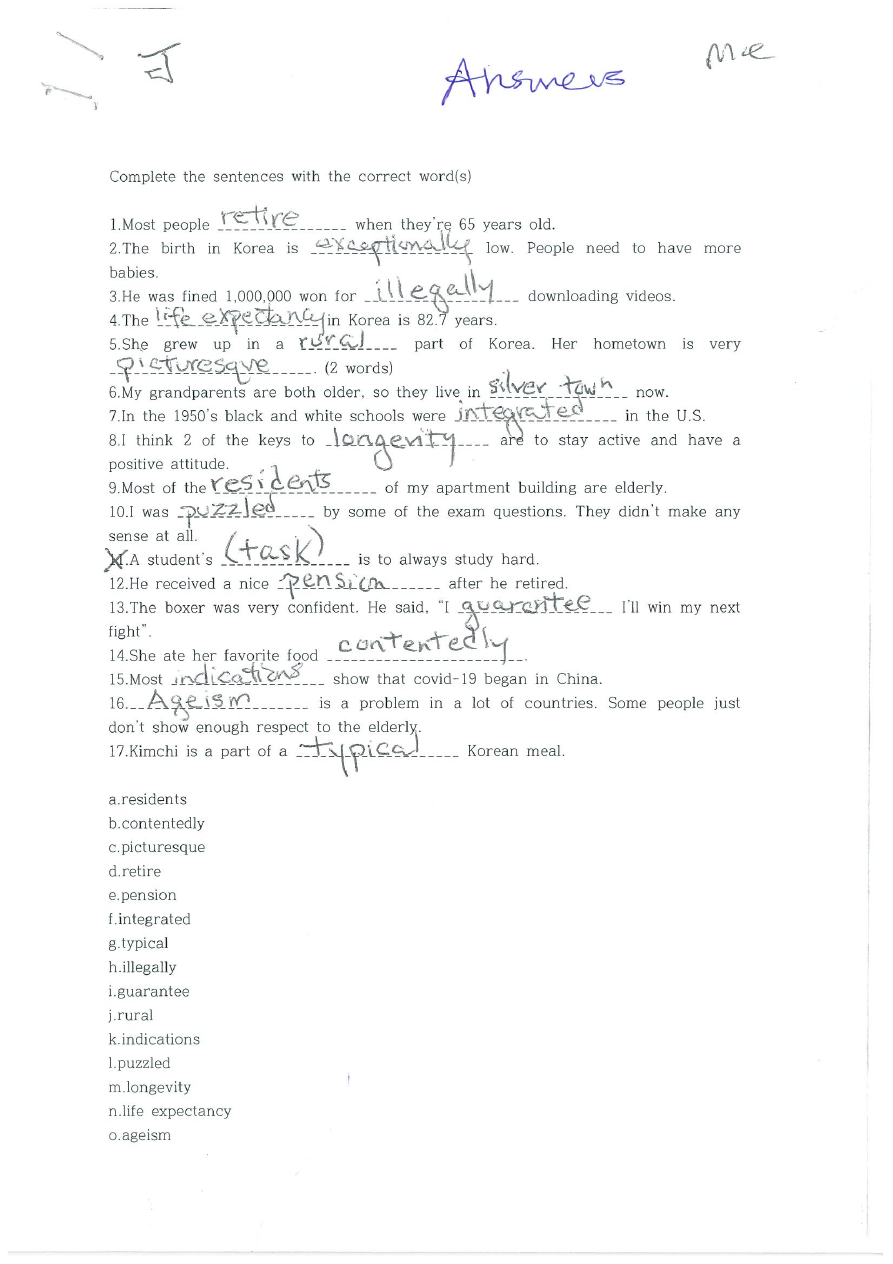 Answers
Me
Complete the sentences with the correct word(s)
1.Most people retire when they're 65 years old.
2.The birth in Korea is exceptionally low. People need to have more
babies.
3.He was fined 1,000,000 won for illegally downloading videos.
4.The life expectancy in Korea is 82.7 years.
5.She grew up in a rural part of Korea. Her hometown is very
picturesque. (2 words)
6.My grandparents are both older, so they live in silver town now.
7.In the 1950's black and white schools were integrated in the U.S.
8.I think 2 of the keys to longevity are to stay active and have a
positive attitude.
9.Most of the residents of my apartment building are elderly.
10.I was puzzled by some of the exam questions. They didn't make any
sense at all.
11.A student's (task) is to always study hard.
12.He received a nice pension after he retired.
13.The boxer was very confident. He said, "I guarantee I'll win my next
fight".
14.She ate her favorite food contentedly.
15.Most indications show that covid-19 began in China.
16. Ageism is a problem in a lot of countries. Some people just
don't show enough respect to the elderly.
17.Kimchi is a part of a typical Korean meal.
a.residents
b.contentedly
c.picturesque
d.retire
e.pension
f.integrated
g.typical
h.illegally
i.guarantee
j.rural
k.indications
l.puzzled
m.longevity
n.life expectancy
o.ageism